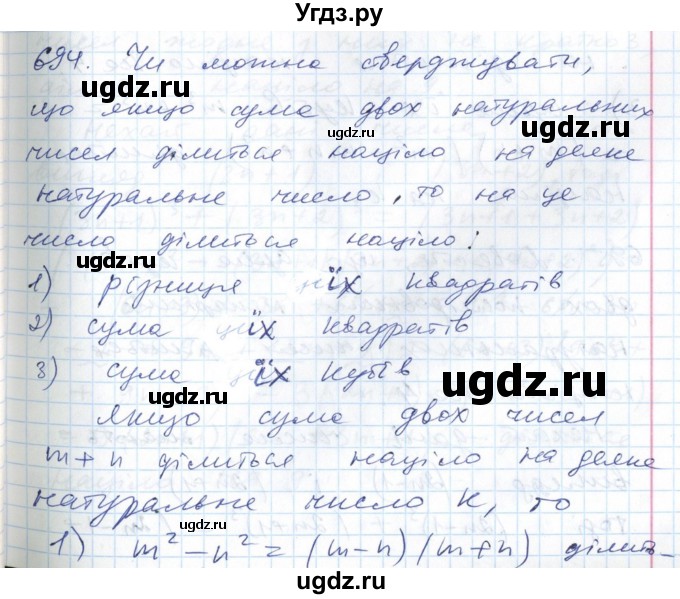 Угдз.ру
694. Чи можна стверджувати,
що якщо сума двох натуральних
чисел ділиться націло на деяке
натуральне число, то на це
число ділиться націло:
1) різниця їх квадратів
2) сума їх квадратів
3) сума їх кубів
Якщо сума двох чисел
m+n ділиться націло на деяке
натуральне число K, то
1) m² - n² = (m-n)(m+n) ділить-
ugdz.ru
ugdz.ru
ugdz.ru
ugdz.ru
ugdz.ru
ugdz.ru
ugdz.ru
ugdz.ru
ugdz.ru